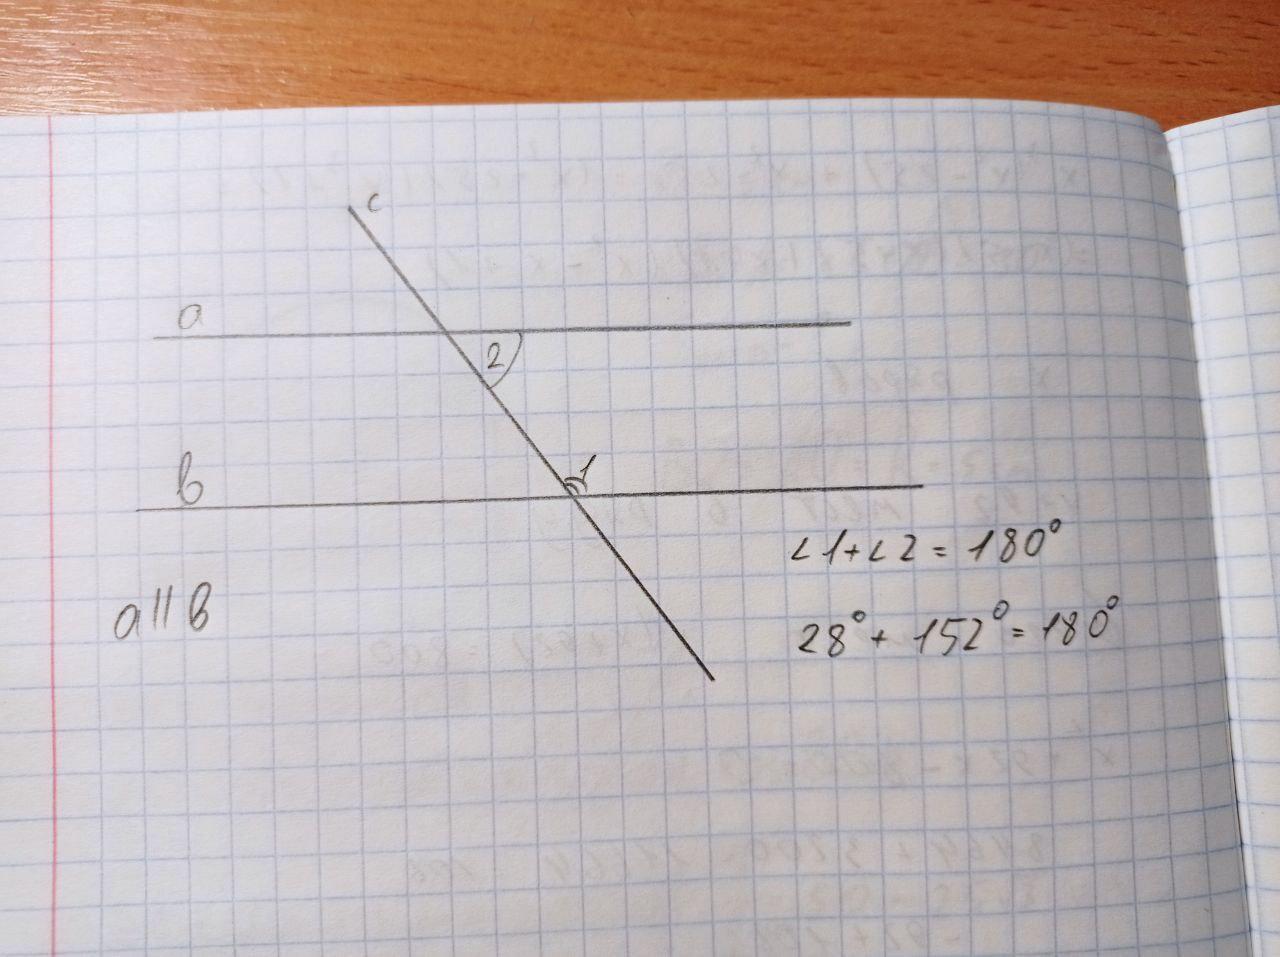 c
a
2
b
1
∠1+∠2=180°
a||b
28°+152°=180°